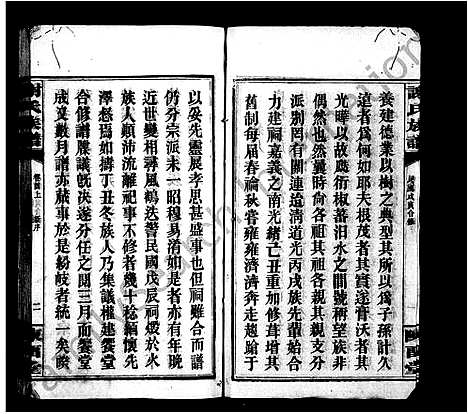 謝氏族譜
養建德業以樹之典型其所以為子孫計久
遠者為何如耶夫根茂者其實遂膏沃者其
光曄以故踐衍椒蕃汨水之間號稱望族非
偶然也然曩時向各祖其祖各親其親支分
派別罔有關連遠清道光丙戌族先輩始合
力建祠嘉義之南光緒亡丑重加修葺增其
舊制每屆春禴秋嘗雍雍濟濟奔走趨蹌于
以妥先靈展孝思甚盛事也但祠雖合而譜
仍分宗派未一昭穆易淆如是者亦有年晚
近世變相尋風鶴迭警民國戊辰祠燬於火
族人顛沛流離祀事不修者幾十稔緬懷先
澤感喟如擣丁丑冬族人乃集議榷建饗堂
合修譜牒議既決遂分任之閱三月而饗堂
成又數月譜亦蕆事於是紛歧者統一矣散
謝氏族譜
卷首上
序
二